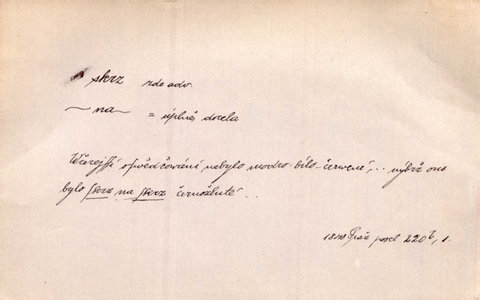 skrz zde adv.
~ na ~ = úplně docela
Včerejší osvědčování nebylo modro-bílo-červené, .. nýbrž ono
bylo skrz na skrz černožluté.
1848 posel 220